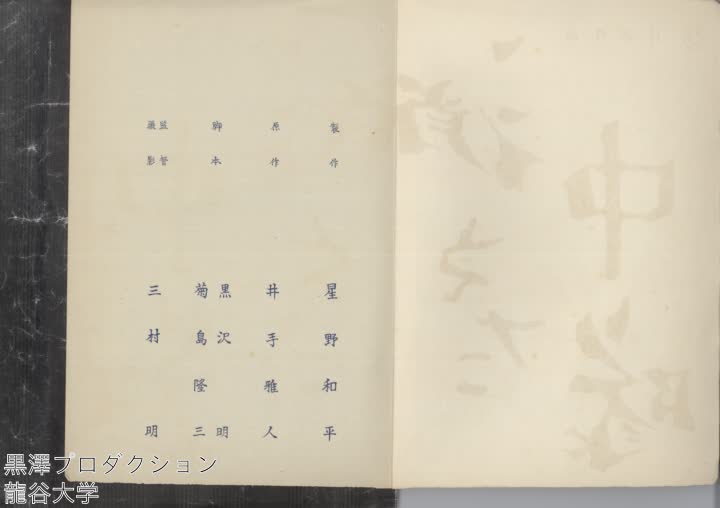 製作 星野和平
原作 井手雅人
脚本 黒沢明
菊島隆三
撮影監督 三村明
黒澤プロダクション
龍谷大学